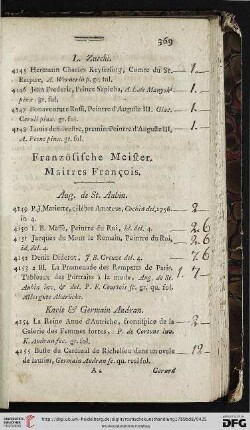 369
L. Zucchi.
4145 Hermann Charles Keyserling, Comte du St.
Empire, A. Wernerin p. gr. fol.
4146 Jean Frederic, Prince Sapieha, A. L. de
pinx. gr. fol.
4147 Bonaventure Rossi, Peintre d'Auguste III. Giac.
Ceruli pinx. gr. fol.
4148 Louis de Silvestre, premier Peintre d'Auguste III,
A. Pesne pinx. gr. fol.
Französische Meister.
Maitres François.
Aug. de St. Aubin.
4149 P. J. Mariette, célèbre Amateur, Cochin del. 1756.
in 4.
4150 I. B. Massé, Peintre du Roi, id. del. 4.
4151 Jacques du Mont le Romain, Peintre du Roi,
id. del. 4.
4152 Denis Diderot, J. B. Greuze del. 4.
4153 a III. La Promenade des Remparts de Paris
Tableaux des Portraits à la mode, Aug. de St.
Aubin inv. & del. P. F. Courtois sc. gr. qu. fol.
Allegories Autrichs.
Karls & Germain Audran.
4154 La Reine Anne d'Autriche, frontispice de la
Galerie des Femmes fortes, P. de Cortone inv.
K. Audran fec. gr. fol.
4155 Buste du Cardinal de Richelieu dans un ovale
de lauriers, Germain Audran sc. qu. roy. fol.
A a
Gerard
1.
1.
1.
1.
2
26
26
76
17
2
12